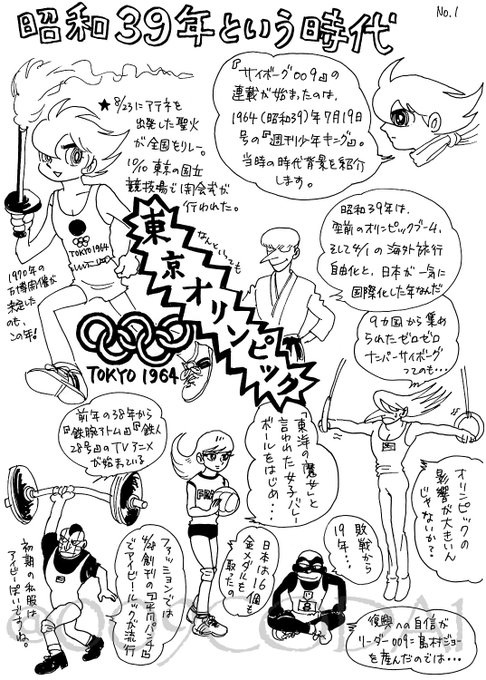 No.1
昭和39年という時代
『サイボーグ009』の
連載が始まったのは、
1964(昭和39)年7月19日
号の『週刊少年キング』。
当時の時代背景を紹介
します。
★8/23にアテネを
出発した聖火
が全国をリレー。
10/10 東京の国立
競技場で開会式が
行われた。
TOKYO 1964
1970年の
万博開催が
決定した
のも、
この年!
なんといっても
東京オリンピック
TOKYO 1964
昭和39年は、
空前のオリンピックブーム、
そして4/1の海外旅行
自由化と、日本が一気に
国際化した年なんだ
9カ国から集め
られたゼロゼロ
ナンバーサイボーグ
ってのも・・・
オリンピックの
影響が大きいん
じゃないか?
前年の38年から
『鉄腕アトム』『鉄人
28号』のTVアニメ
が始まっている
「東洋の魔女」と
言われた女子バレー
ボールをはじめ・・
日本は16個も
金メダルを
取ったの
敗戦から
19年・・・
ファッションでは
4/28創刊の『平凡パンチ』
でアイビールックが流行
初期の私服は
アイビーぽいですね。
復興への自信が
リーダー009=島村ジョー
を産んだのでは・・・